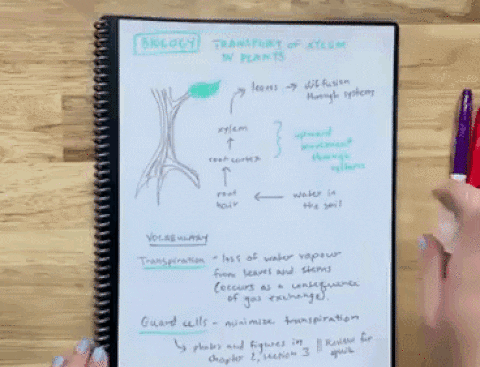 BIOLOGY TRANSPORT OF XYLEM
IN PLANTS
leaves → diffusion
through systems
xylem
upward
movement
through
systems
root cortex
root
hair
← water in
the soil
VOCABULARY
Transpiration - loss of water vapour
from leaves and stems
(occurs as a consequence
of gas exchange).
Guard cells - minimize transpiration
↳ photos and figures in
chapter 2, section 3
Review for
quiz